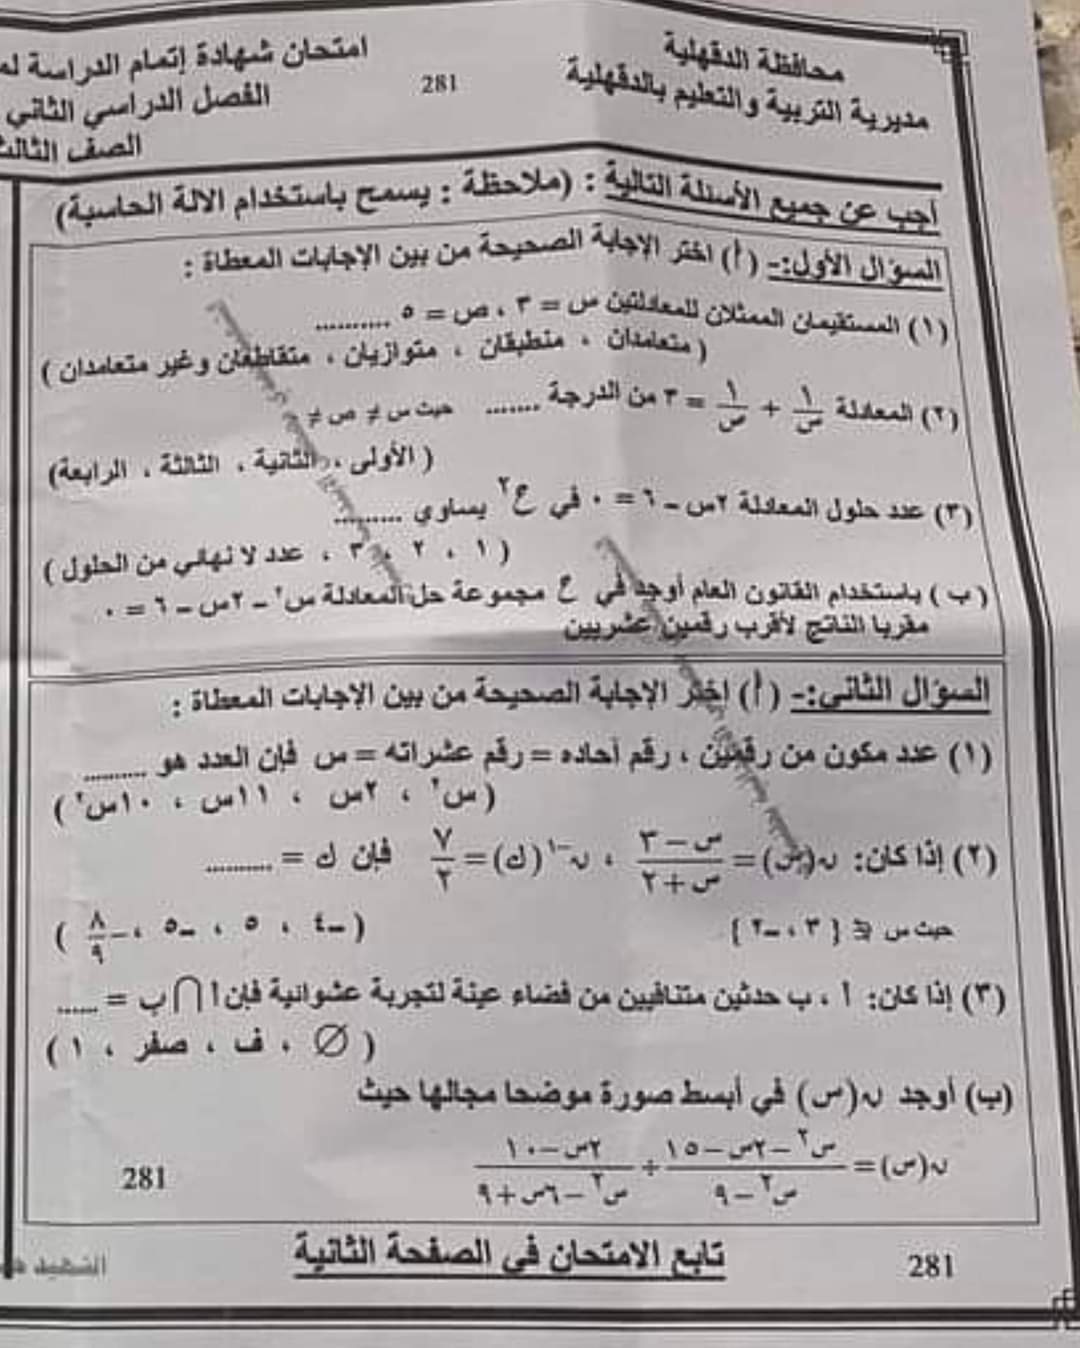 محافظة الدقهلية
مديرية التربية والتعليم بالدقهلية
281
امتحان شهادة إتمام الدراسة
الفصل الدراسي الثاني
الصف الثالث
أجب عن جميع الأسئلة التالية : (ملاحظة : يسمح باستخدام الالة الحاسبة)
السؤال الأول:- (أ) اختر الإجابة الصحيحة من بين الإجابات المعطاة :
(١) المستقيمان الممثلان للمعادلتين س = ٣ ، ص = ٥ ..........
( متعامدان ، منطبقان ، متوازيان ، متقاطعان وغير متعامدان )
(٢) المعادلة ١/س + ١/ص = ٣ من الدرجة ....... حيث س ≠ ص ≠
( الأولى ، الثانية ، الثالثة ، الرابعة)
(٣) عدد حلول المعادلة ٢س – ٦ = ٠ في ح٢ يساوي .........
( ١ ، ٢ ، ٣ ، عدد لا نهائي من الحلول )
(ب ) باستخدام القانون العام أوجد في ح مجموعة حل المعادلة س٢ – ٢س – ٦ = ٠
مقربا الناتج لأقرب رقمين عشريين
السؤال الثاني:- (أ) اختر الإجابة الصحيحة من بين الإجابات المعطاة :
(١) عدد مكون من رقمين ، رقم أحاده = رقم عشراته = س فإن العدد هو .........
( س٢ ، ٢س ، ١١س ، ١٠س٢ )
(٢) إذا كان: ن(س) = (س – ٣)/(س + ٢) ، ن–١(ك) = ٧/٢ فإن ك = .........
حيث س ∉ { ٣ ، –٢ }
( –٤ ، ٥ ، –٥ ، –٨/٩ )
(٣) إذا كان: أ ، ب حدثين متنافيين من فضاء عينة لتجربة عشوائية فإن أ ∩ ب = .....
( ∅ ، ف ، صفر ، ١ )
(ب) أوجد ن(س) في أبسط صورة موضحا مجالها حيث
ن(س) = (س٢ – ٢س – ١٥)/(س٢ – ٩) ÷ (٢س – ١٠)/(س٢ – ٦س + ٩)
281
تابع الامتحان في الصفحة الثانية
281